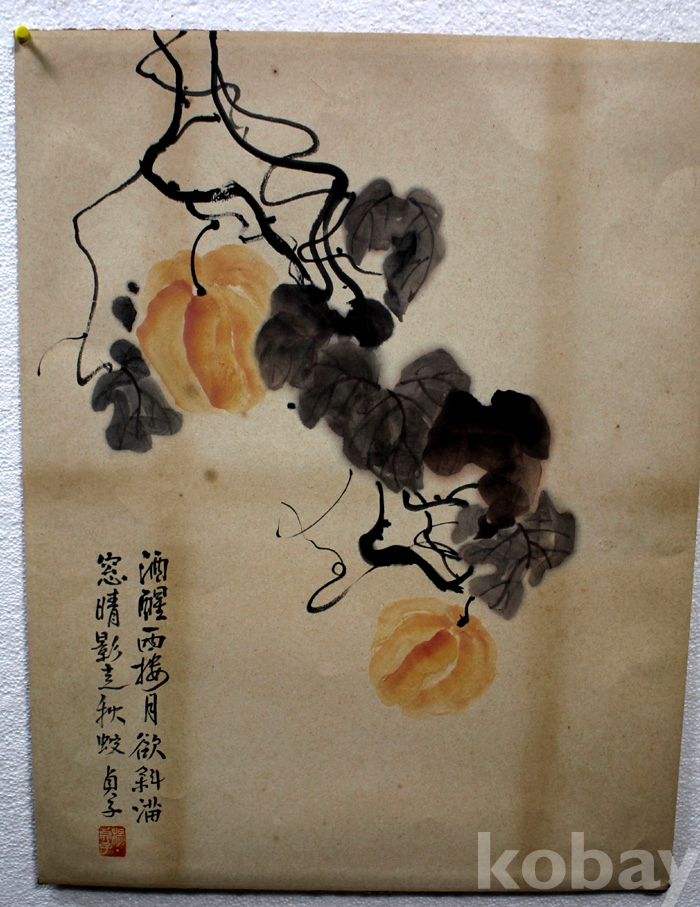 酒醒西樓月欲斜滿
窓晴影走秋蛇 貞子
kobay